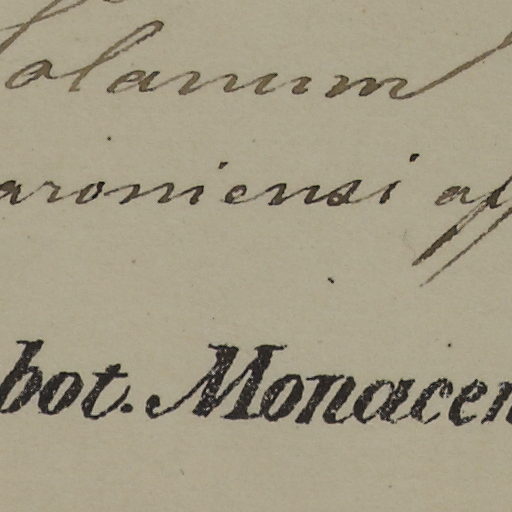 Solanum
aroniensi aff
bot. Monacen